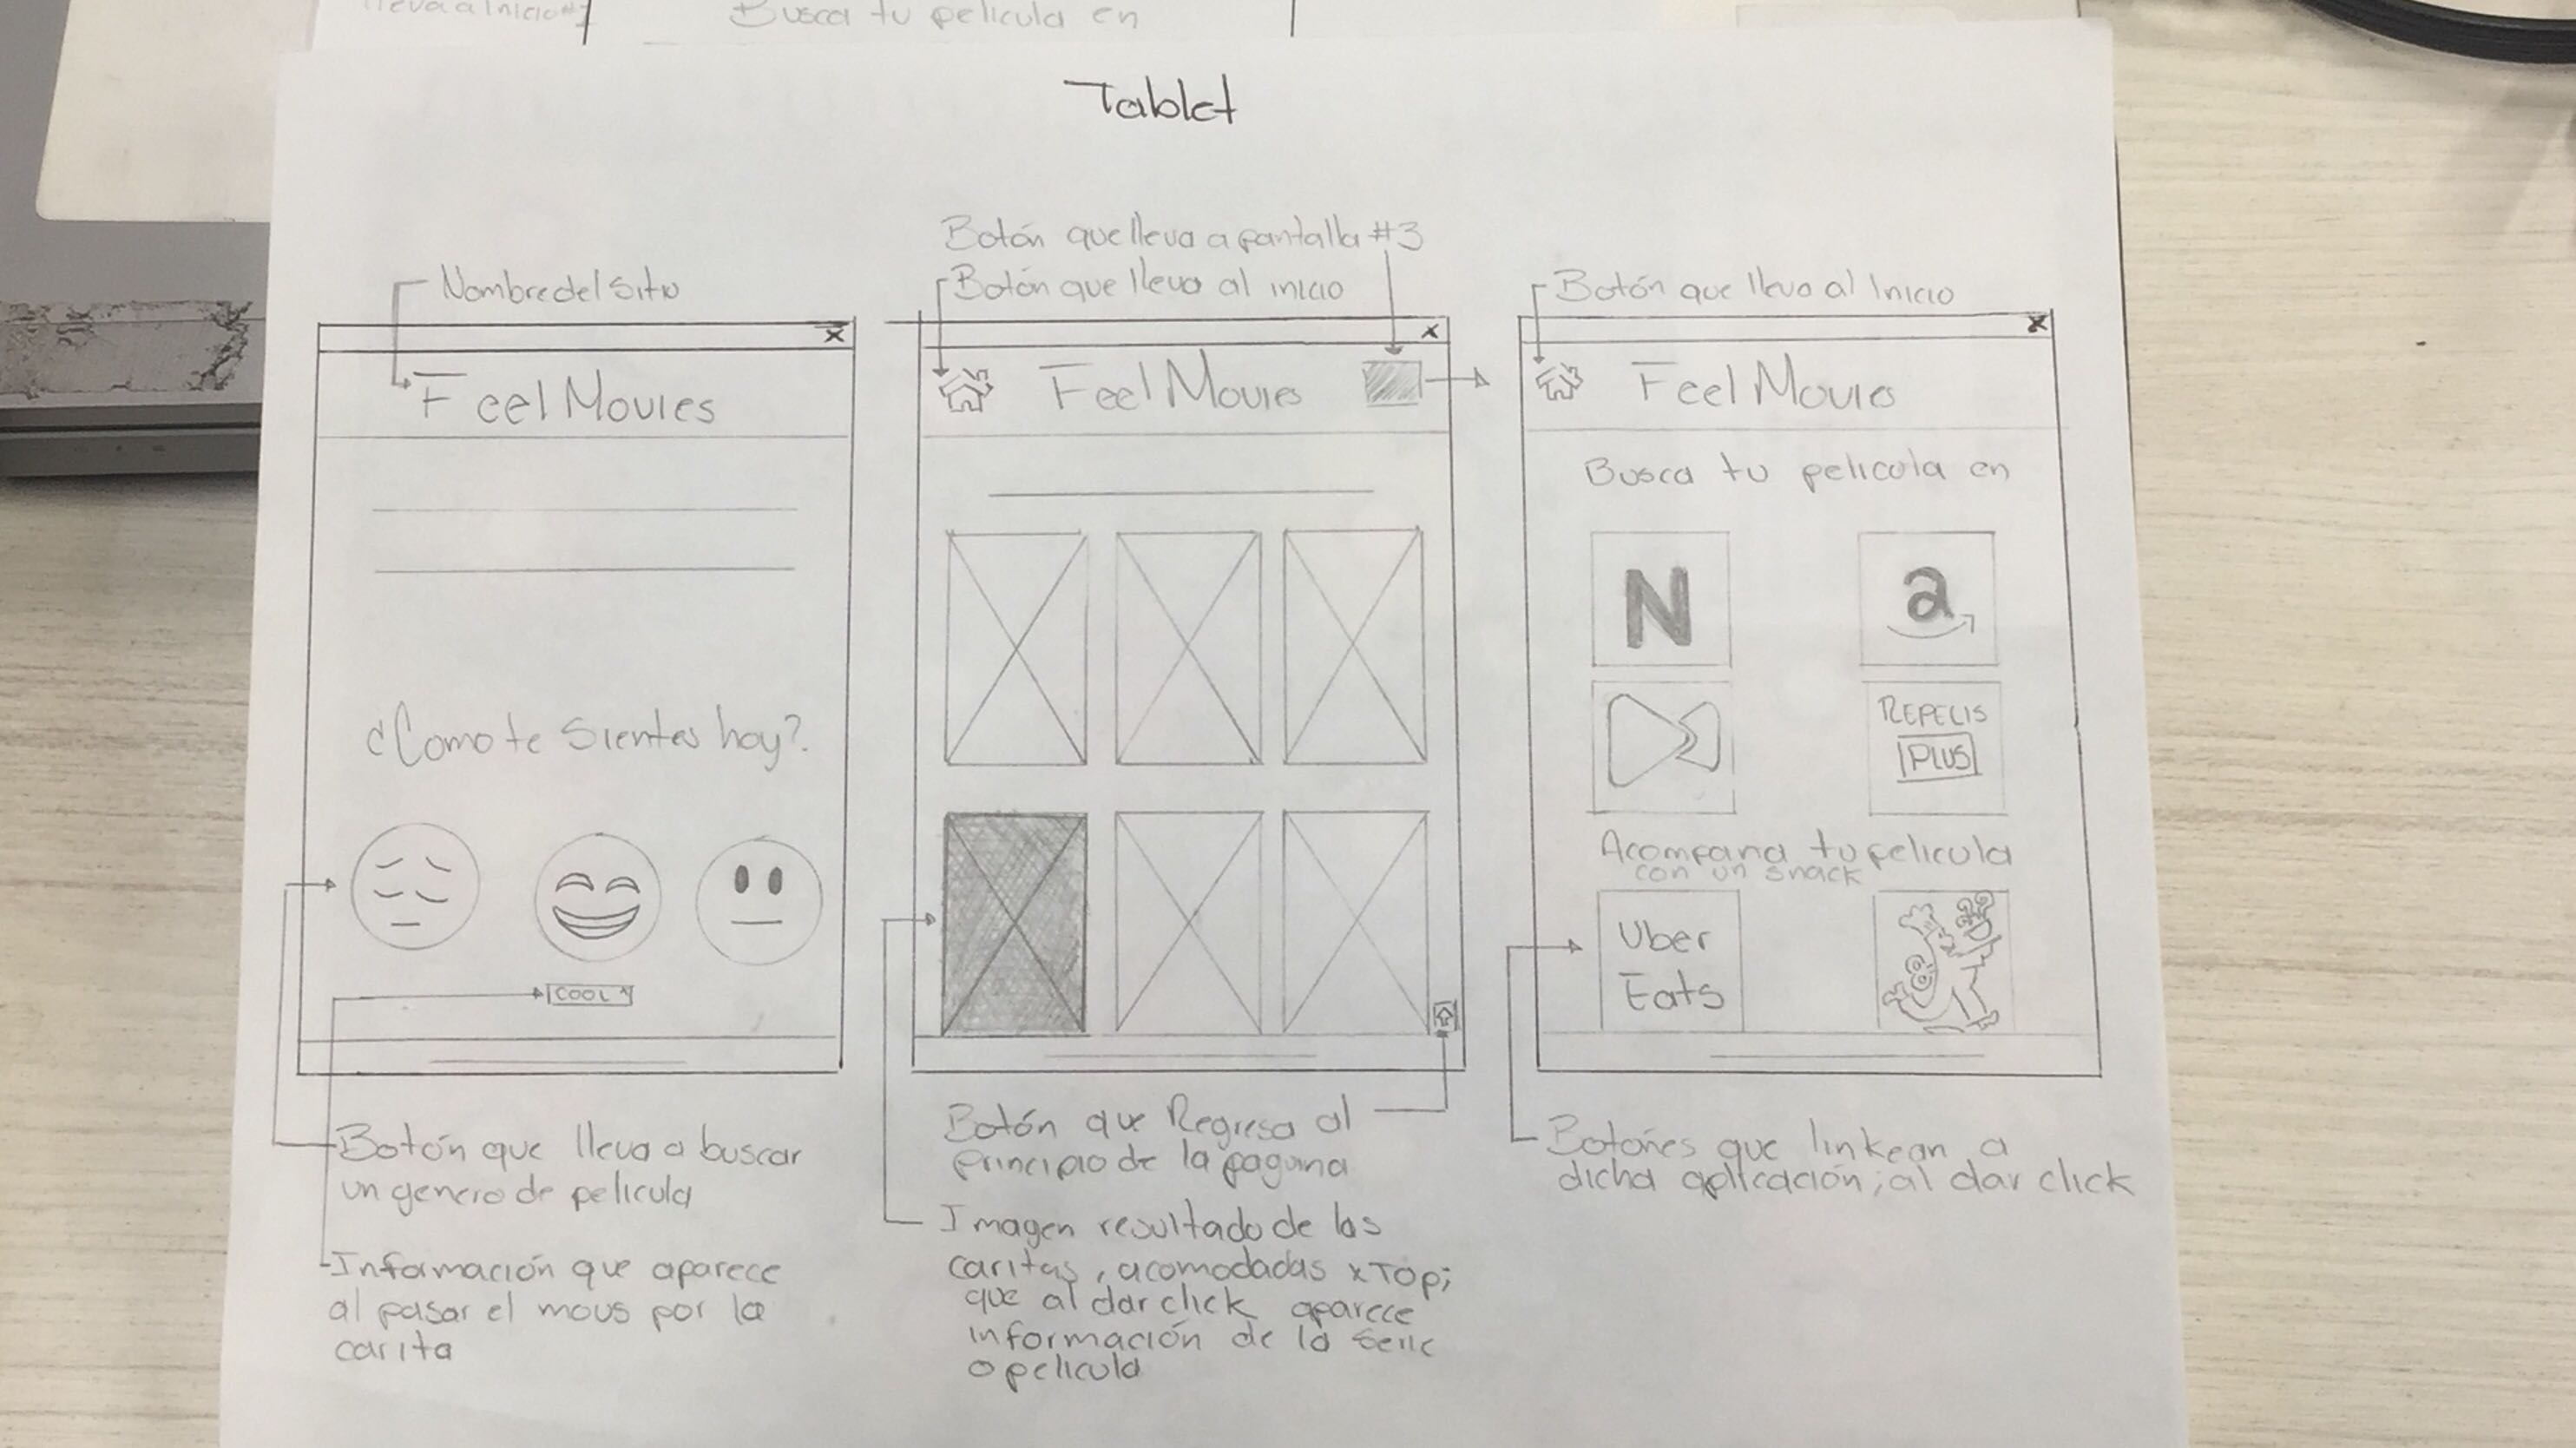 lleva a Inicio #1
Busca tu pelicula en
Tablet
Nombre del Sitio
Feel Movies
¿Como te Sientes hoy?
COOL
Botón que lleva a buscar
un genero de pelicula
Información que aparece
al pasar el mous por la
carita
Botón que lleva a pantalla #3
Botón que lleva al inicio
x
Feel Movies
Botón que Regresa al
principio de la pagina
Imagen resultado de las
caritas, acomodadas x TOP;
que al dar click aparece
información de la serie
o pelicula
Botón que lleva al Inicio
x
Feel Movies
Busca tu pelicula en
N
a
REPELIS
PLUS
Acompana tu pelicula
con un snack
Uber
Eats
Botones que linkean a
dicha aplicación; al dar click